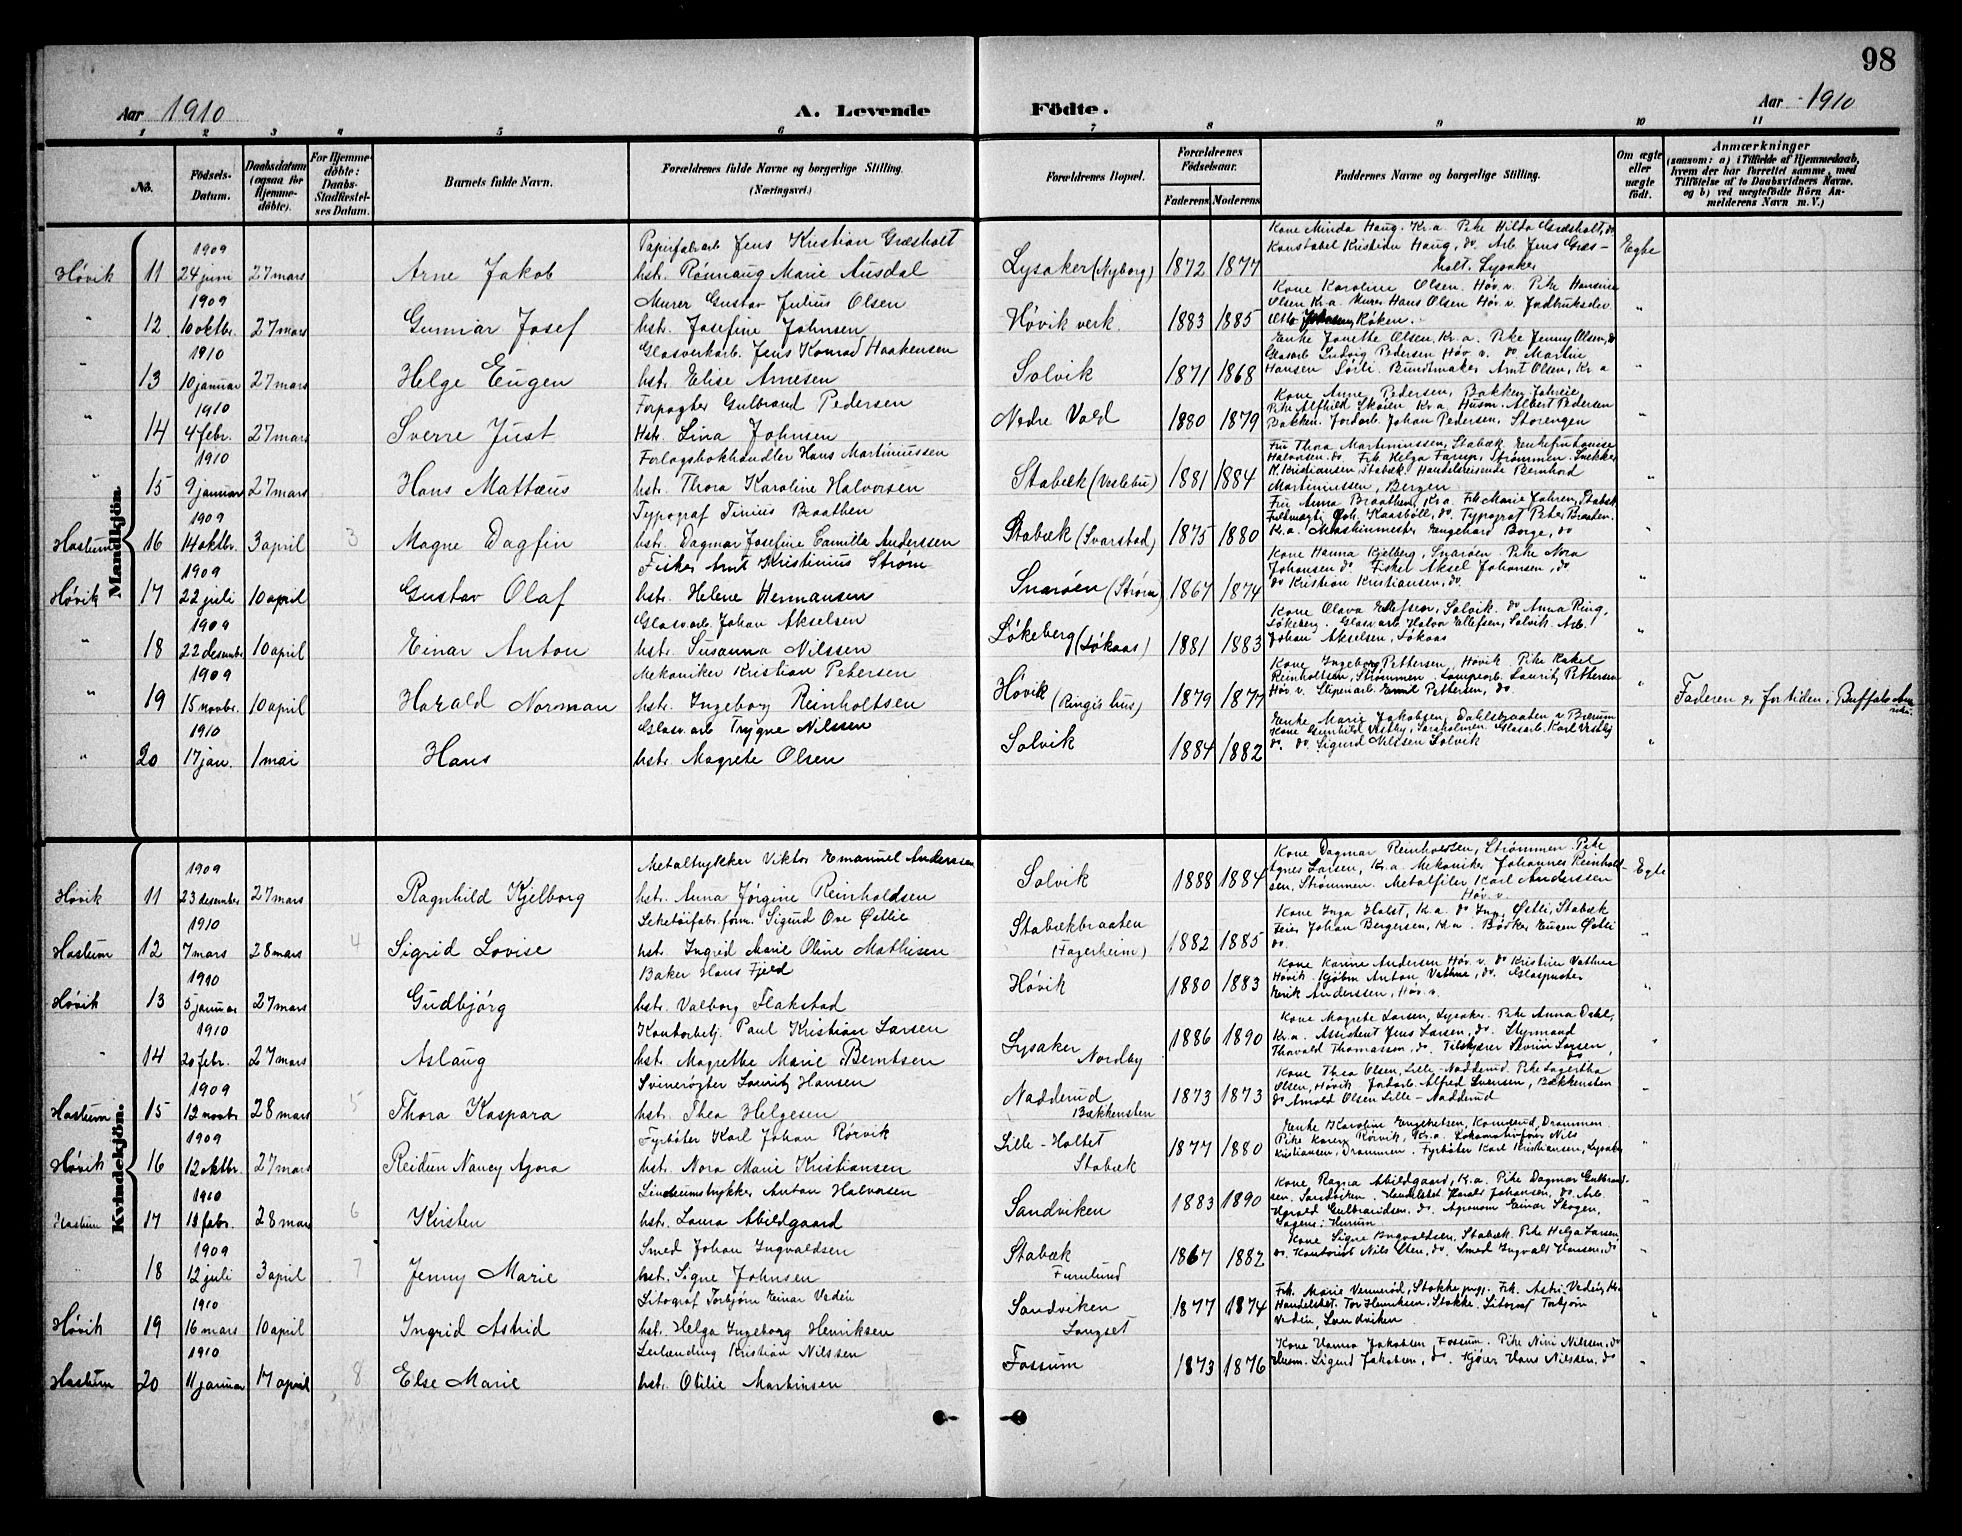 98
Aar 1910
A. Levende Födte.
Aar 1910
1 2 3 4 5 6 7 8 9 10 11
No.
Födsels-Datum.
Daabsdatum (ogsaa for Hjemmedöbte).
For Hjemmedöbte: Daabs-Stadfæstelses Datum.
Barnets fulde Navn.
Forældrenes fulde Navne og borgerlige Stilling. (Næringsvei.)
Forældrenes Bopæl.
Forældrenes Födselsaar.
Faderens.
Moderens.
Faddernes Navne og borgerlige Stilling.
Om ægte eller uægte födt.
Anmærkninger
(saasom: a) i Tilfælde af Hjemmedaab, hvem der har forrettet samme, med Tilföielse af to Daabsvidners Navne, og b) ved uægtefödte Börn Anmelderens Navn m. V.)
Mandkjön.
Høvik 11 1909 24 juni 27 mars Arne Jakob
Papirfabrarb Jens Kristian Græsholt
hstr. Rønnaug Marie Ausdal
Lysaker (Nyborg) 1872 1877
Kone Minda Haug, Kr.a. Pike Hilda Græsholt, do
Konstabel Kristian Haug, do. Arb. Jens Græs-
holt, Lysaker
Egte
" 12 1909 10 oktbr. 27 mars Gunnar Josef
Murer Gustav Julius Olsen
hstr. Josefine Johnsen
Høvik verk. 1883 1885
Kone Karoline Olsen, Høv. v. Pike Hansine
Olsen Kr.a. Murer Hans Olsen Høv. v.
Røken. "
" 13 1910 10 januar 27 mars Helge Eugen
Glasverkarb. Jens Konrad Haakensen
hstr. Elise Arnesen
Solvik 1871 1868
Enke Janette Olsen, Kr.a. Pike Jenny Olsen, do
Glasarb Ludvig Pedersen Høv. v. do Martin
Hansen Buntmaker Arnt Olsen, Kr.a "
" 14 1910 4 febr. 27 mars Sverre Just
Forpagter Gulbrand Pedersen
Hstr. Lina Johnsen
Nedre Vold 1880 1879
Kone Anne Pedersen, Bakken,
Pike Alfhild Skøien Kr.a Husm. Albert Pedersen
Bakken. Jordarb. Johan Pedersen, Storengen "
" 15 1910 9 januar 27 mars Hans Mattæus
Forlagsbokhandler Hans Martiniussen
hstr. Thora Karoline Halvorsen
Stabæk (Veslebu) 1881 1884
Fru Thora Martiniussen, Stabæk, Enkefru Lovise
Halvorsen do. Frk. Helga Strømmen. Snekker
Kristiansen, Stabæk Handelsreisende Bernhard
Martiniussen, Bergen "
Haslum 16 1909 14 oktbr. 3 april 3 Magne Dagfin
Typograf Tinius Braathen
hstr. Dagmar Josefine Camilla Anderssen
Stabæk (Svarstad) 1875 1880
Fru Anna Braathen, Kr.a. Frk Marie Jahren, Stabæk
Kaasbøll, do. Typograf Peter Braaten.
Kr.a. Maskinmester Engehard Borge, do "
Høvik 17 1909 22 juli 10 april Gustav Olaf
Fisker Arnt Kristinius Strøm
hstr. Helene Hermansen
Snarøen (Strøm) 1867 1874
Kone Hanna Kjelberg, Snarøen. Pike Nora
Johansen do. Fisker Aksel Johansen, do
do Kristian Kristiansen, do. "
" 18 1909 22 desembr 10 april Einar Anton
Glasvarb. Johan Akselsen
hstr. Susanna Nilssen
Løkeberg (Løkaas) 1881 1883
Kone Olava Ellefsen, Solvik. do Anna Ring,
Løkeberg. Glasvarb Halvor Ellefsen, Solvik. Arb.
Johan Akselsen, Løkaas "
" 19 1909 15 novbr. 10 april Harald Norman
Mekaniker Kristian Petersen
hstr. Ingeborg Reinholtsen
Høvik (Ringis hus) 1879 1877
Kone Ingeborg Pettersen, Høvik. Pike Rakel
Reinholtsen, Strømmen. Lampearb. Laurits Pettersen
Høv v. Sliperiarb. Emil Pettersen, do. "
Faderen er for tiden i Buffalo Amerika.
" 20 1910 17 jan. 1 mai Hans
Glasv.arb Trygve Nilssen
hstr. Magrete Olsen
Solvik 1884 1882
Enke Marie Jakobsen, Dahlsbraaten v Bærum
Kone Gunhild Vestby, Glasarb. Karl Vestby
do. do. Sigurd Nilssen Solvik "
Kvindekjön.
Høvik 11 1909 23 desember 27 mars Ragnhild Kjelborg
Metaltrykker Viktor Emanuel Anderssen
hstr. Anna Jørgine Reinholdsen
Solvik 1888 1884
Kone Dagmar Reinholdsen, Strømmen. Pike
Agnes Larsen, Kr.a. Mekaniker Johannes Reinhold-
sen, Strømmen. Metalfiler Karl Anderssen
Høv. v.
Egte
Haslum 12 1910 7 mars 28 mars 4 Sigrid Lovise
Sigurd Ove Østlie
hstr. Ingrid Marie Oline Mathisen
Stabækbraaten (Fagerheim) 1882 1885
Kone Inga Holst, Kr.a. do Ing. Østli, Stabæk
Feier Johan Bergersen, Kr.a. Bødker Eugen Østli
do. "
Høvik 13 1910 5 januar 27 mars Gudbjörg
Baker Hans Fjeld
hstr. Valborg Flakstad
Høvik 1880 1883
Kone Karine Andersen Høv. v. do Kristine Vathne
Høvik. Kjøbm Anton Vathne, do. Glaspuster
Henrik Anderssen, Høv. v. "
" 14 1910 20 febr. 27 mars Aslaug
Kontorbetj. Paul Kristian Larsen
hst. Magrethe Marie Berntsen
Lysaker Nordby 1886 1890
Kone Magrete Larsen, Lysaker. Pike Anna Dahl,
Kr.a. Assistent Jens Larsen, do. Styrmand
Thorvald Thomassen, do. Tilskjærer Severin Larsen,
do "
Haslum 15 1909 12 novbr 28 mars 5 Thora Kaspara
Svinerøgter Lauritz Hansen
hst. Thea Helgesen
Nadderud Bækkensten 1873 1873
Kone Thea Olsen, Lille-Nadderud. Pike Lagertha
Olsen, Høvik. Jordarb. Alfred Iversen, Bækkensten
do Arnold Olsen Lille-Nadderud "
Høvik 16 1909 12 oktbr. 27 mars Reidun Nancy Agora
Fyrbøter Karl Johan Rørvik
hst. Nora Marie Kristiansen
Lille-Holtet Stabæk 1877 1880
Enke Karoline Engebretsen, Konnerud, Drammen.
Pike Karen Rørvik, Kr.a. Lokomotivfører Nils
Kristiansen, Drammen. Fyrbøter Karl Kristiansen, Lysaker "
Haslum 17 1910 18 febr. 28 mars 6 Kirsten
Linoleumstrykker Anton Halvorsen
hst. Laura Abildgaard
Sandviken 1883 1890
Kone Ragna Abildgaard, Kr.a. Pike Dagmar Gulbrand-
sen. Sandviken. Handelsbet. Harald Johansen, do. Arb.
Harald Gulbrandsen. do. Agronom Einar Skogen,
Hurum "
" 18 1909 12 juli 3 april 7 Jenny Marie
Smed Johan Ingvaldsen
hst. Signe Johnsen
Stabæk Furulund 1867 1882
Kone Signe Ingvaldsen, Stabæk. Pike Helga Larsen
do. Kontorist Nils Sten, do. Smed Ingvald Hansen, do "
Høvik 19 1910 16 mars 10 april Ingrid Astrid
Litograf Torbjørn Einar Vedèn
hst. Helga Ingeborg Henriksen
Sandviken Langset 1877 1874
Frk. Marie Vennerød, Stokke Frk. Astri Vedèn,
Handelsbet. Tor Henriksen, Stokke. Litograf Torbjørn
Vedèn, Sandviken "
Haslum 20 1910 11 januar 17 april 8 Else Marie
Leilænding Kristian Nilssen
hst. Otilie Martinsen
Fossum 1873 1876
Kone Hanna Jakobsen, Fossum. Pike Nini Nilssen, do
Husm. Sigurd Jakobsen, do. Kjører Hans Nilssen, do "